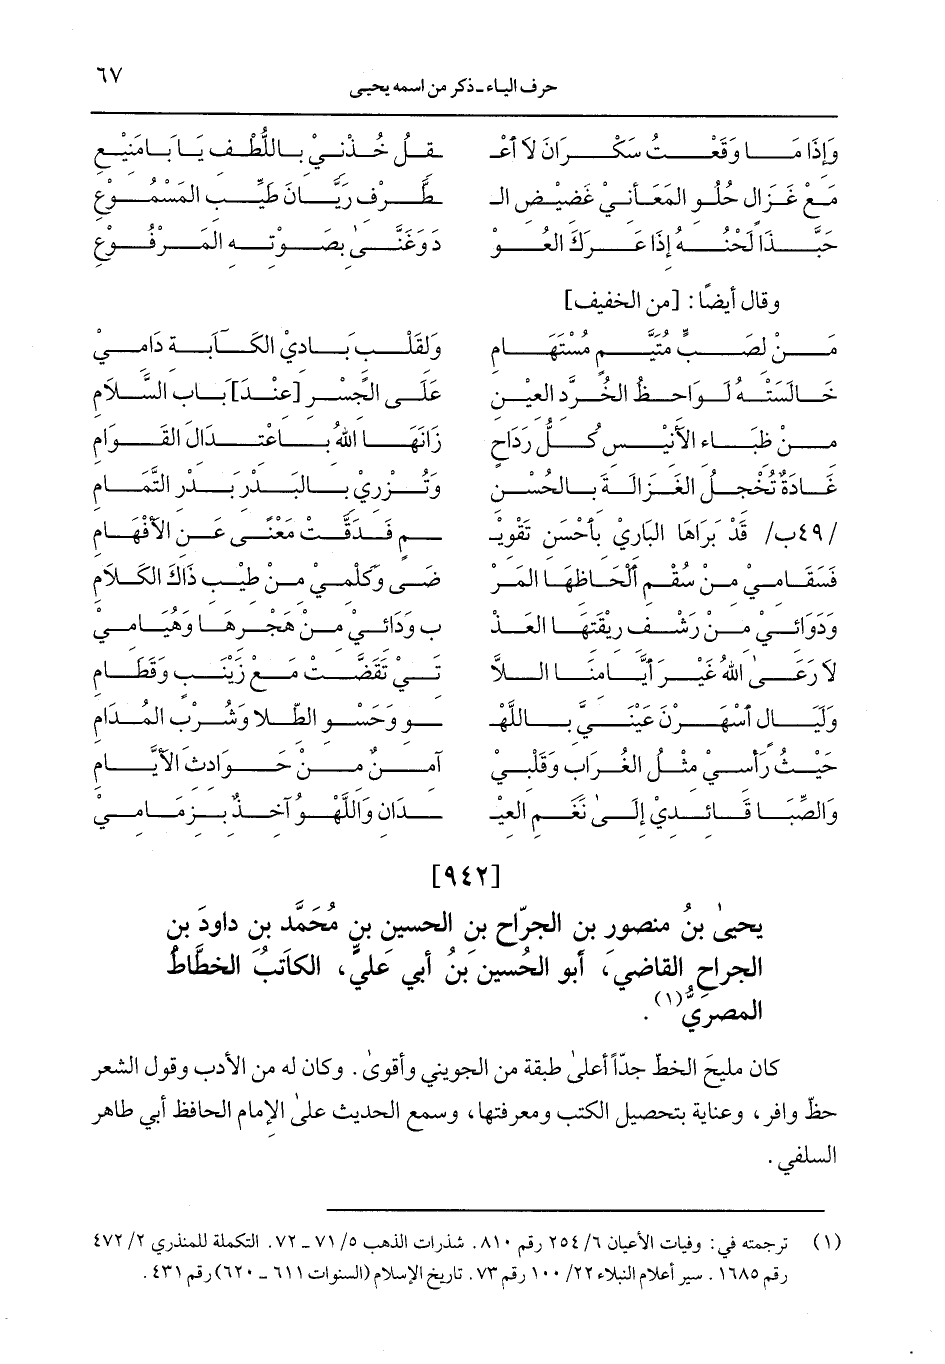 ٦٧
حرف الياء ـ ذكر من اسمه يحيى
وَإِذَا مَا وَقَعْتُ سَكْرَانَ لاَ أَعْـ ـقِلُ خُذْنِيْ بِاللُّطْفِ يَا بَامَنِيْعِ
مَعْ غَزَالٍ حُلْوِ المَعَانِيْ غَضِيْضِ الـ ـطَّرْفِ رَيَّانَ طَيِّبِ المَسْمُوْعِ
حَبَّذَا لَحْنُهُ إِذَا عَرَكَ العُوْ دَ وَغَنَّىٰ بِصَوْتِهِ المَرْفُوْعِ
وقال أيضًا: [من الخفيف]
مَنْ لِصَبٍّ مُتَيَّمٍ مُسْتَهَامِ وَلِقَلْبٍ بَادِيْ الكَآبَةِ دَامِيْ
خَالَسَتْهُ لَوَاحِظُ الخُرَّدِ العِيْنِ عَلَى الجِسْرِ [عِنْدَ] بَابِ السَّلاَمِ
مِنْ ظِبَاءِ الأَنِيْسِ كُلُّ رَدَاحٍ زَانَهَا اللهُ بِاعْتِدَالِ القَوَامِ
غَادَةٌ تُخْجِلُ الغَزَالَةَ بِالحُسْنِ وَتُزْرِيْ بِالبَدْرِ بَدْرِ التَّمَامِ
/٤٩ب/ قَدْ بَرَاهَا البَارِيْ بِأَحْسَنِ تَقْوِيْـ ـمٍ فَدَقَّتْ مَعْنًى عَنِ الأَفْهَامِ
فَسَقَامِيْ مِنْ سُقْمِ أَلْحَاظِهَا المَرْ ضَى وَكَلْمِيْ مِنْ طِيْبِ ذَاكَ الكَلاَمِ
وَدَوَائِيْ مِنْ رَشْفِ رِيْقَتِهَا العَذْ بِ وَدَائِيْ مِنْ هَجْرِهَا وَهُيَامِيْ
لاَ رَعَىٰ اللهُ غَيْرَ أَيَّامِنَا اللاَّ تِيْ تَقَضَّتْ مَعْ زَيْنَبٍ وَقَطَامِ
وَلَيَالٍ أَسْهَرْنَ عَيْنَيَّ بِاللَّهْـ ـوِ وَحَسْوِ الطِّلا وَشُرْبِ المُدَامِ
حَيْثُ رَأْسِيْ مِثْلُ الغُرَابِ وَقَلْبِيْ آمِنٌ مِنْ حَوَادِثِ الأَيَّامِ
وَالصِّبَا قَائِدِيْ إِلَىٰ نَغَمِ العِيْـ ـدَانِ وَاللَّهْوُ آخِذٌ بِزِمَامِيْ
[٩٤٢]
يحيىٰ بنُ منصورِ بنِ الجرّاحِ بنِ الحسينِ بنِ مُحَمَّدِ بنِ داودَ بنِ
الجراحِ القاضي، أبو الحُسينِ بنُ أبي عَليٍّ، الكاتبُ الخطَّاطُ
المصريُّ(١).
كان مليحَ الخطّ جدّاً أعلىٰ طبقة من الجويني وأقوىٰ. وكان له من الأدب وقول الشعر
حظّ وافر، وعناية بتحصيل الكتب ومعرفتها، وسمع الحديث علىٰ الإمام الحافظ أبي طاهرٍ
السلفي.
(١) ترجمته في: وفيات الأعيان ٦/ ٢٥٤ رقم ٨١٠. شذرات الذهب ٥/ ٧١ ـ ٧٢. التكملة للمنذري ٢/ ٤٧٢
رقم ١٦٨٥. سير أعلام النبلاء ٢٢/ ١٠٠ رقم ٧٣. تاريخ الإسلام (السنوات ٦١١ ـ ٦٢٠) رقم ٤٣١.